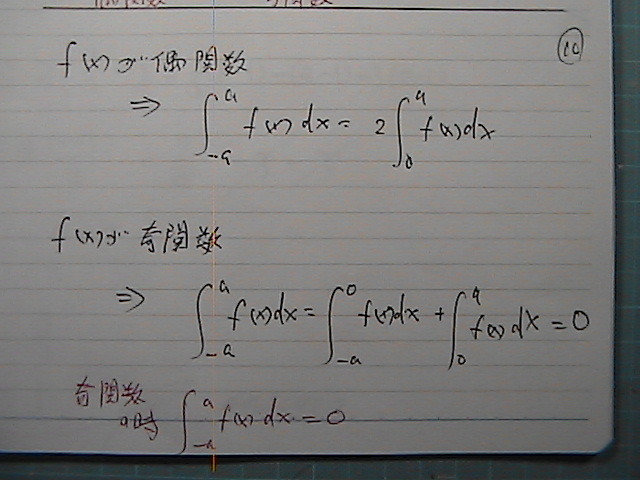 ⑩
f(x)が偶関数
⇒ ∫_{-a}^{a} f(x)dx = 2∫_{0}^{a} f(x)dx
f(x)が奇関数
⇒ ∫_{-a}^{a} f(x)dx = ∫_{-a}^{0} f(x)dx + ∫_{0}^{a} f(x)dx = 0
奇関数
の時 ∫_{-a}^{a} f(x)dx = 0